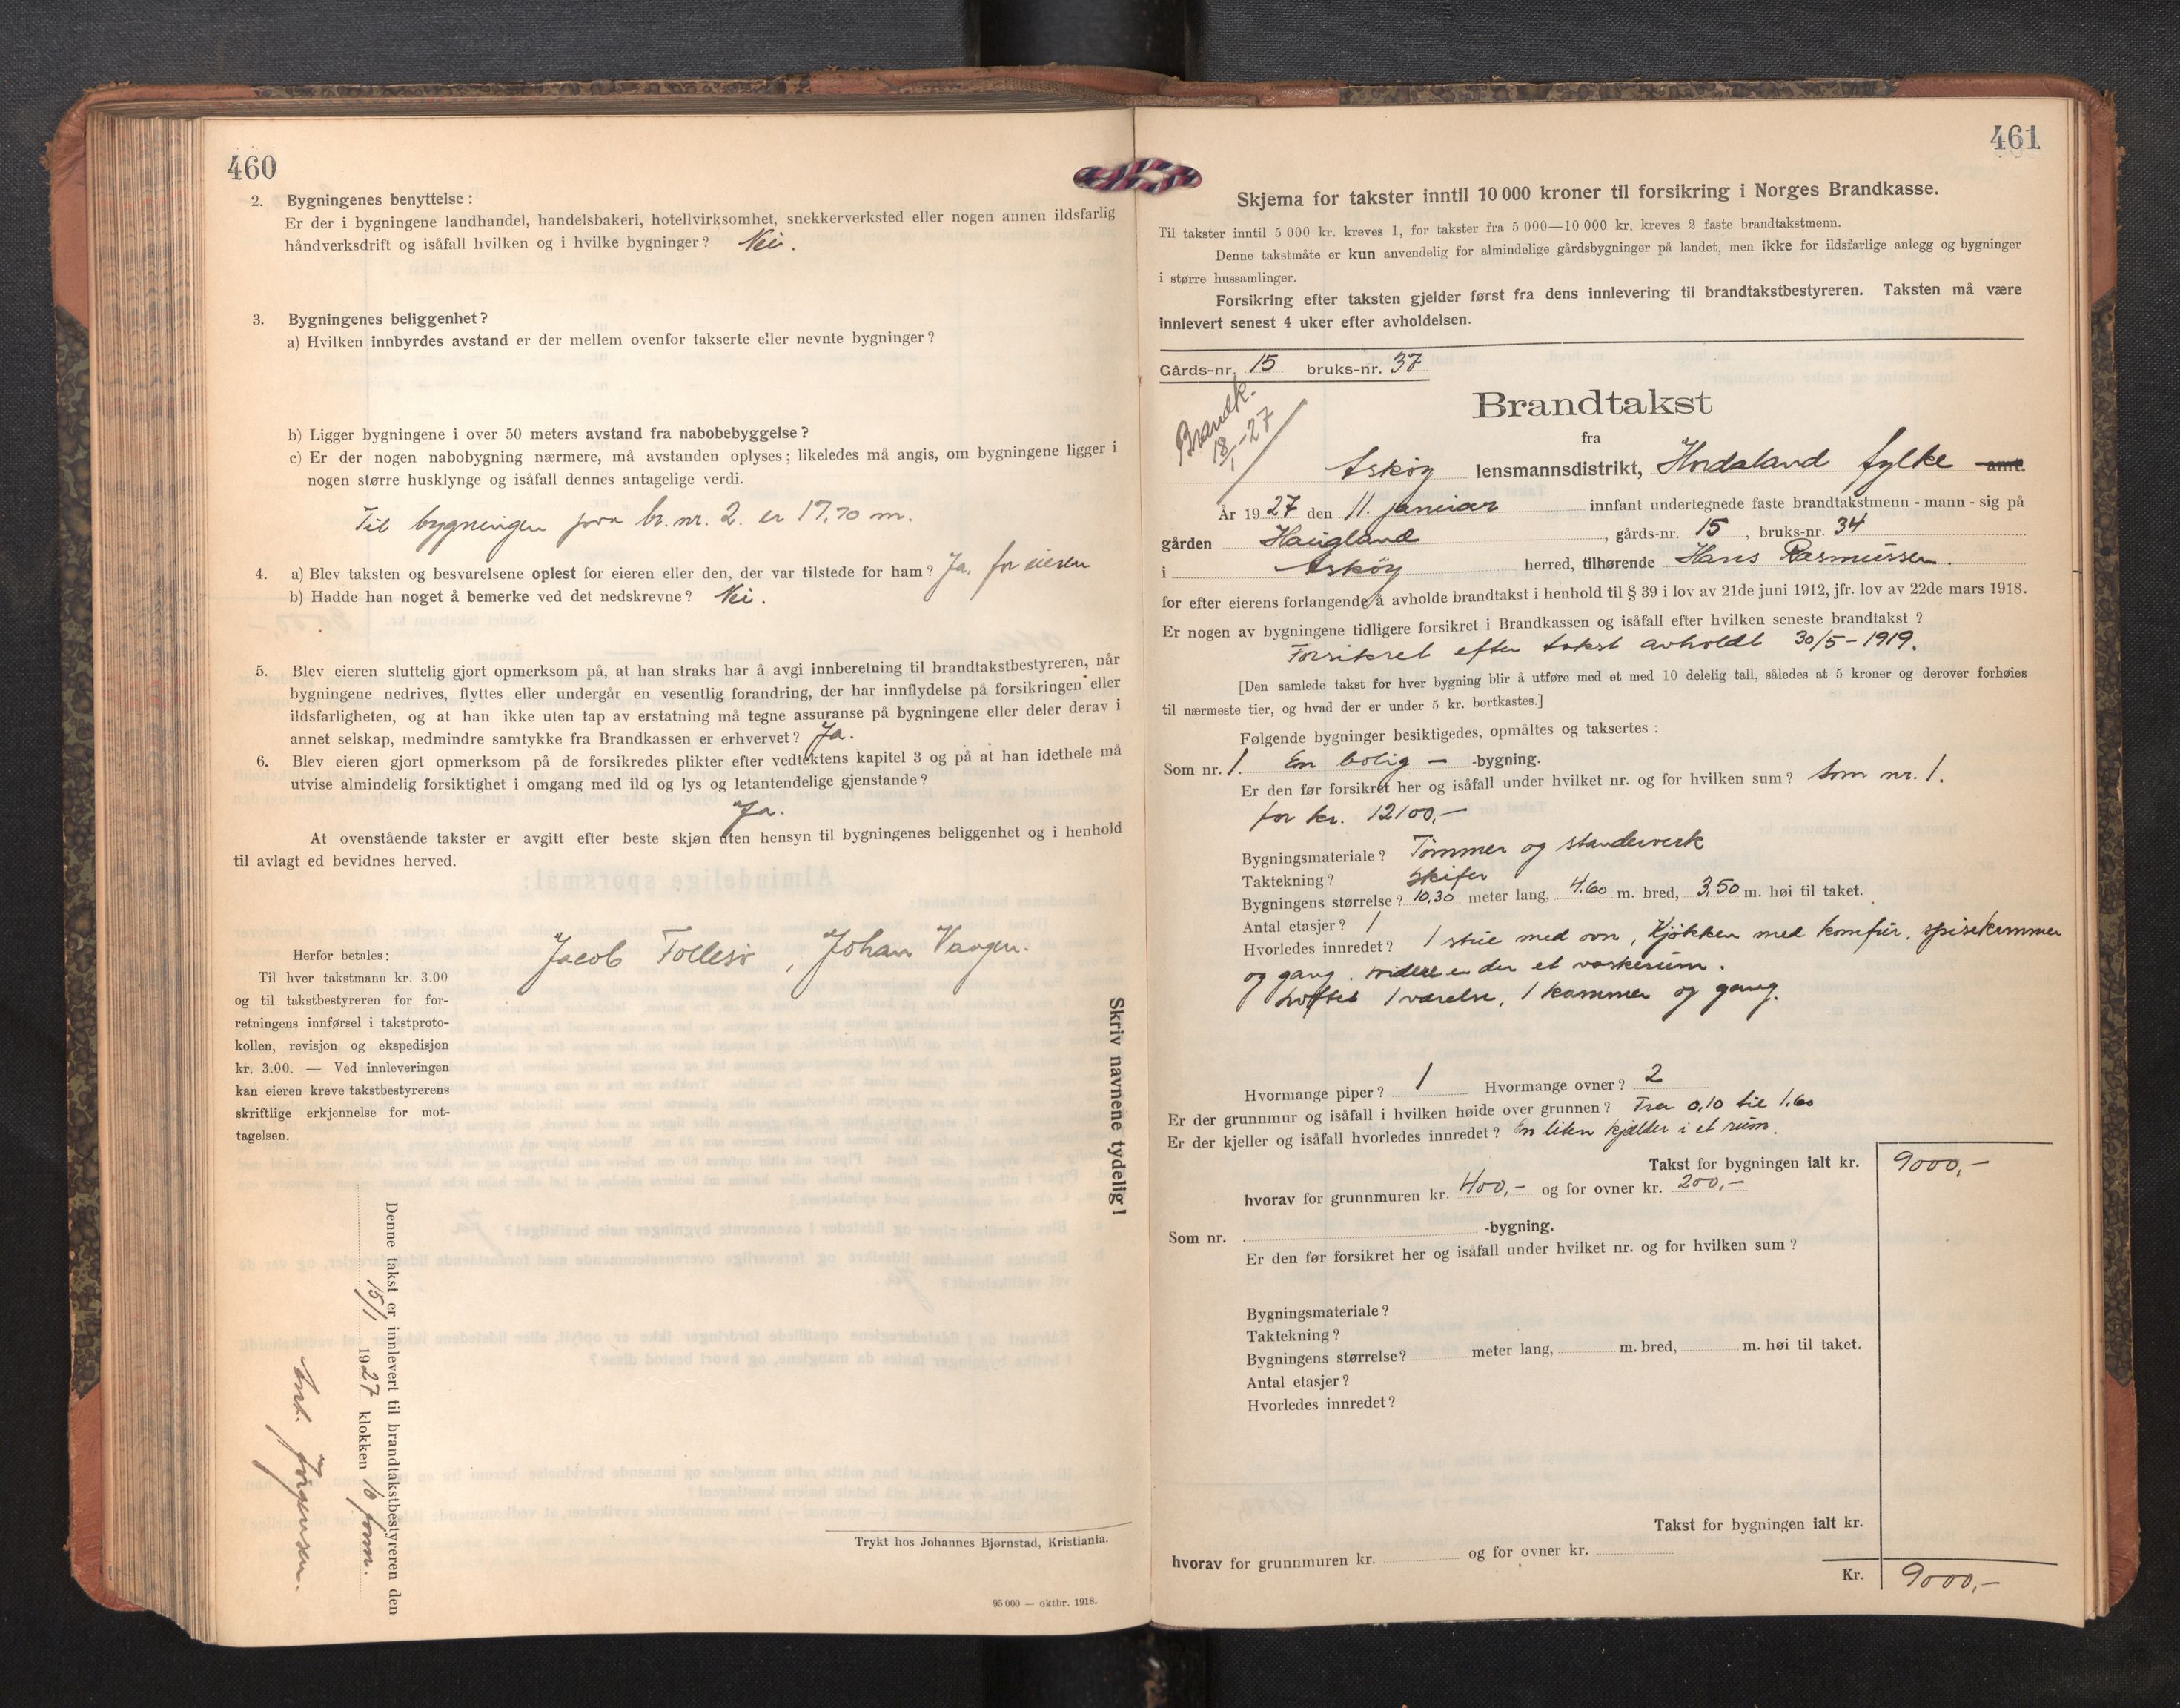 460
2. Bygningenes benyttelse:
Er der i bygningene landhandel, handelsbakeri, hotellvirksomhet, snekkerverksted eller nogen annen ildsfarlig
håndverksdrift og isåfall hvilken og i hvilke bygninger? Nei.
3. Bygningenes beliggenhet?
a) Hvilken innbyrdes avstand er der mellem ovenfor takserte eller nevnte bygninger?
b) Ligger bygningene i over 50 meters avstand fra nabobebyggelse?
c) Er der nogen nabobygning nærmere, må avstanden oplyses; likeledes må angis, om bygningene ligger i
nogen større husklynge og isåfall dennes antagelige verdi.
Til bygningen paa br. nr. 2. er 17,70 m.
4. a) Blev taksten og besvarelsene oplest for eieren eller den, der var tilstede for ham? Ja, for eieren
b) Hadde han noget å bemerke ved det nedskrevne? Nei.
5. Blev eieren sluttelig gjort opmerksom på, at han straks har å avgi innberetning til brandtakstbestyreren, når
bygningene nedrives, flyttes eller undergår en vesentlig forandring, der har innflydelse på forsikringen eller
ildsfarligheten, og at han ikke uten tap av erstatning må tegne assuranse på bygningene eller deler derav i
annet selskap, medmindre samtykke fra Brandkassen er erhvervet? Ja.
6. Blev eieren gjort opmerksom på de forsikredes plikter efter vedtektens kapitel 3 og på at han idethele må
utvise almindelig forsiktighet i omgang med ild og lys og letantendelige gjenstande?
Ja.
At ovenstående takster er avgitt efter beste skjøn uten hensyn til bygningenes beliggenhet og i henhold
til avlagt ed bevidnes herved.
Jacob Follesø, Johan Vaagen.
Herfor betales:
Til hver takstmann kr. 3.00
og til takstbestyreren for for-
retningens innførsel i takstproto-
kollen, revisjon og ekspedisjon
kr. 3.00. — Ved innleveringen
kan eieren kreve takstbestyrerens
skriftlige erkjennelse for mot-
tagelsen.
Skriv navnene tydelig!
Denne takst er innlevert til brandtakstbestyreren den
15/1 1927 klokken 10 form.
And. Jørgensen.
Trykt hos Johannes Bjørnstad, Kristiania.
95 000 — oktbr. 1918.
461
Skjema for takster inntil 10 000 kroner til forsikring i Norges Brandkasse.
Til takster inntil 5 000 kr. kreves 1, for takster fra 5 000—10 000 kr. kreves 2 faste brandtakstmenn.
Denne takstmåte er kun anvendelig for almindelige gårdsbygninger på landet, men ikke for ildsfarlige anlegg og bygninger
i større hussamlinger.
Forsikring efter taksten gjelder først fra dens innlevering til brandtakstbestyreren. Taksten må være
innlevert senest 4 uker efter avholdelsen.
Gårds-nr. 15 bruks-nr. 37
Brandk.
18/1-27
Brandtakst
fra
Askøy lensmannsdistrikt, Hordaland fylke amt.
År 1927 den 11. januar innfant undertegnede faste brandtakstmenn - mann - sig på
gården Haugland, gårds-nr. 15, bruks-nr. 34
i Askøy herred, tilhørende Hans Rasmussen.
for efter eierens forlangende å avholde brandtakst i henhold til § 39 i lov av 21de juni 1912, jfr. lov av 22de mars 1918.
Er nogen av bygningene tidligere forsikret i Brandkassen og isåfall efter hvilken seneste brandtakst?
Forsikret efter takst avholdt 30/5-1919.
[Den samlede takst for hver bygning blir å utføre med et med 10 delelig tall, således at 5 kroner og derover forhøies
til nærmeste tier, og hvad der er under 5 kr. bortkastes.]
Følgende bygninger besiktigedes, opmåltes og taksertes:
Som nr. 1. En bolig — -bygning.
Er den før forsikret her og isåfall under hvilket nr. og for hvilken sum? Som nr. 1.
for kr. 12100,-
Bygningsmateriale? Tømmer og standerverk
Taktekning? Skifer
Bygningens størrelse? 10,30 meter lang, 4.60 m. bred, 3,50 m. høi til taket.
Antal etasjer? 1
Hvorledes innredet? 1 stue med ovn, Kjøkken med komfur, spisekammer
og gang. videre er der et vaskerum.
Loftet 1 værelse, 1 kammer og gang.
Hvormange piper? 1 Hvormange ovner? 2
Er der grunnmur og isåfall i hvilken høide over grunnen? Fra 0,10 til 1.60
Er der kjeller og isåfall hvorledes innredet? En liten kjælder i et rum.
Takst for bygningen ialt kr. 9000,-
hvorav for grunnmuren kr. 400,- og for ovner kr. 200,-
Som nr. -bygning.
Er den før forsikret her og isåfall under hvilket nr. og for hvilken sum?
Bygningsmateriale?
Taktekning?
Bygningens størrelse? meter lang, m. bred, m. høi til taket.
Antal etasjer?
Hvorledes innredet?
Takst for bygningen ialt kr.
hvorav for grunnmuren kr. og for ovner kr.
Kr. 9000,-